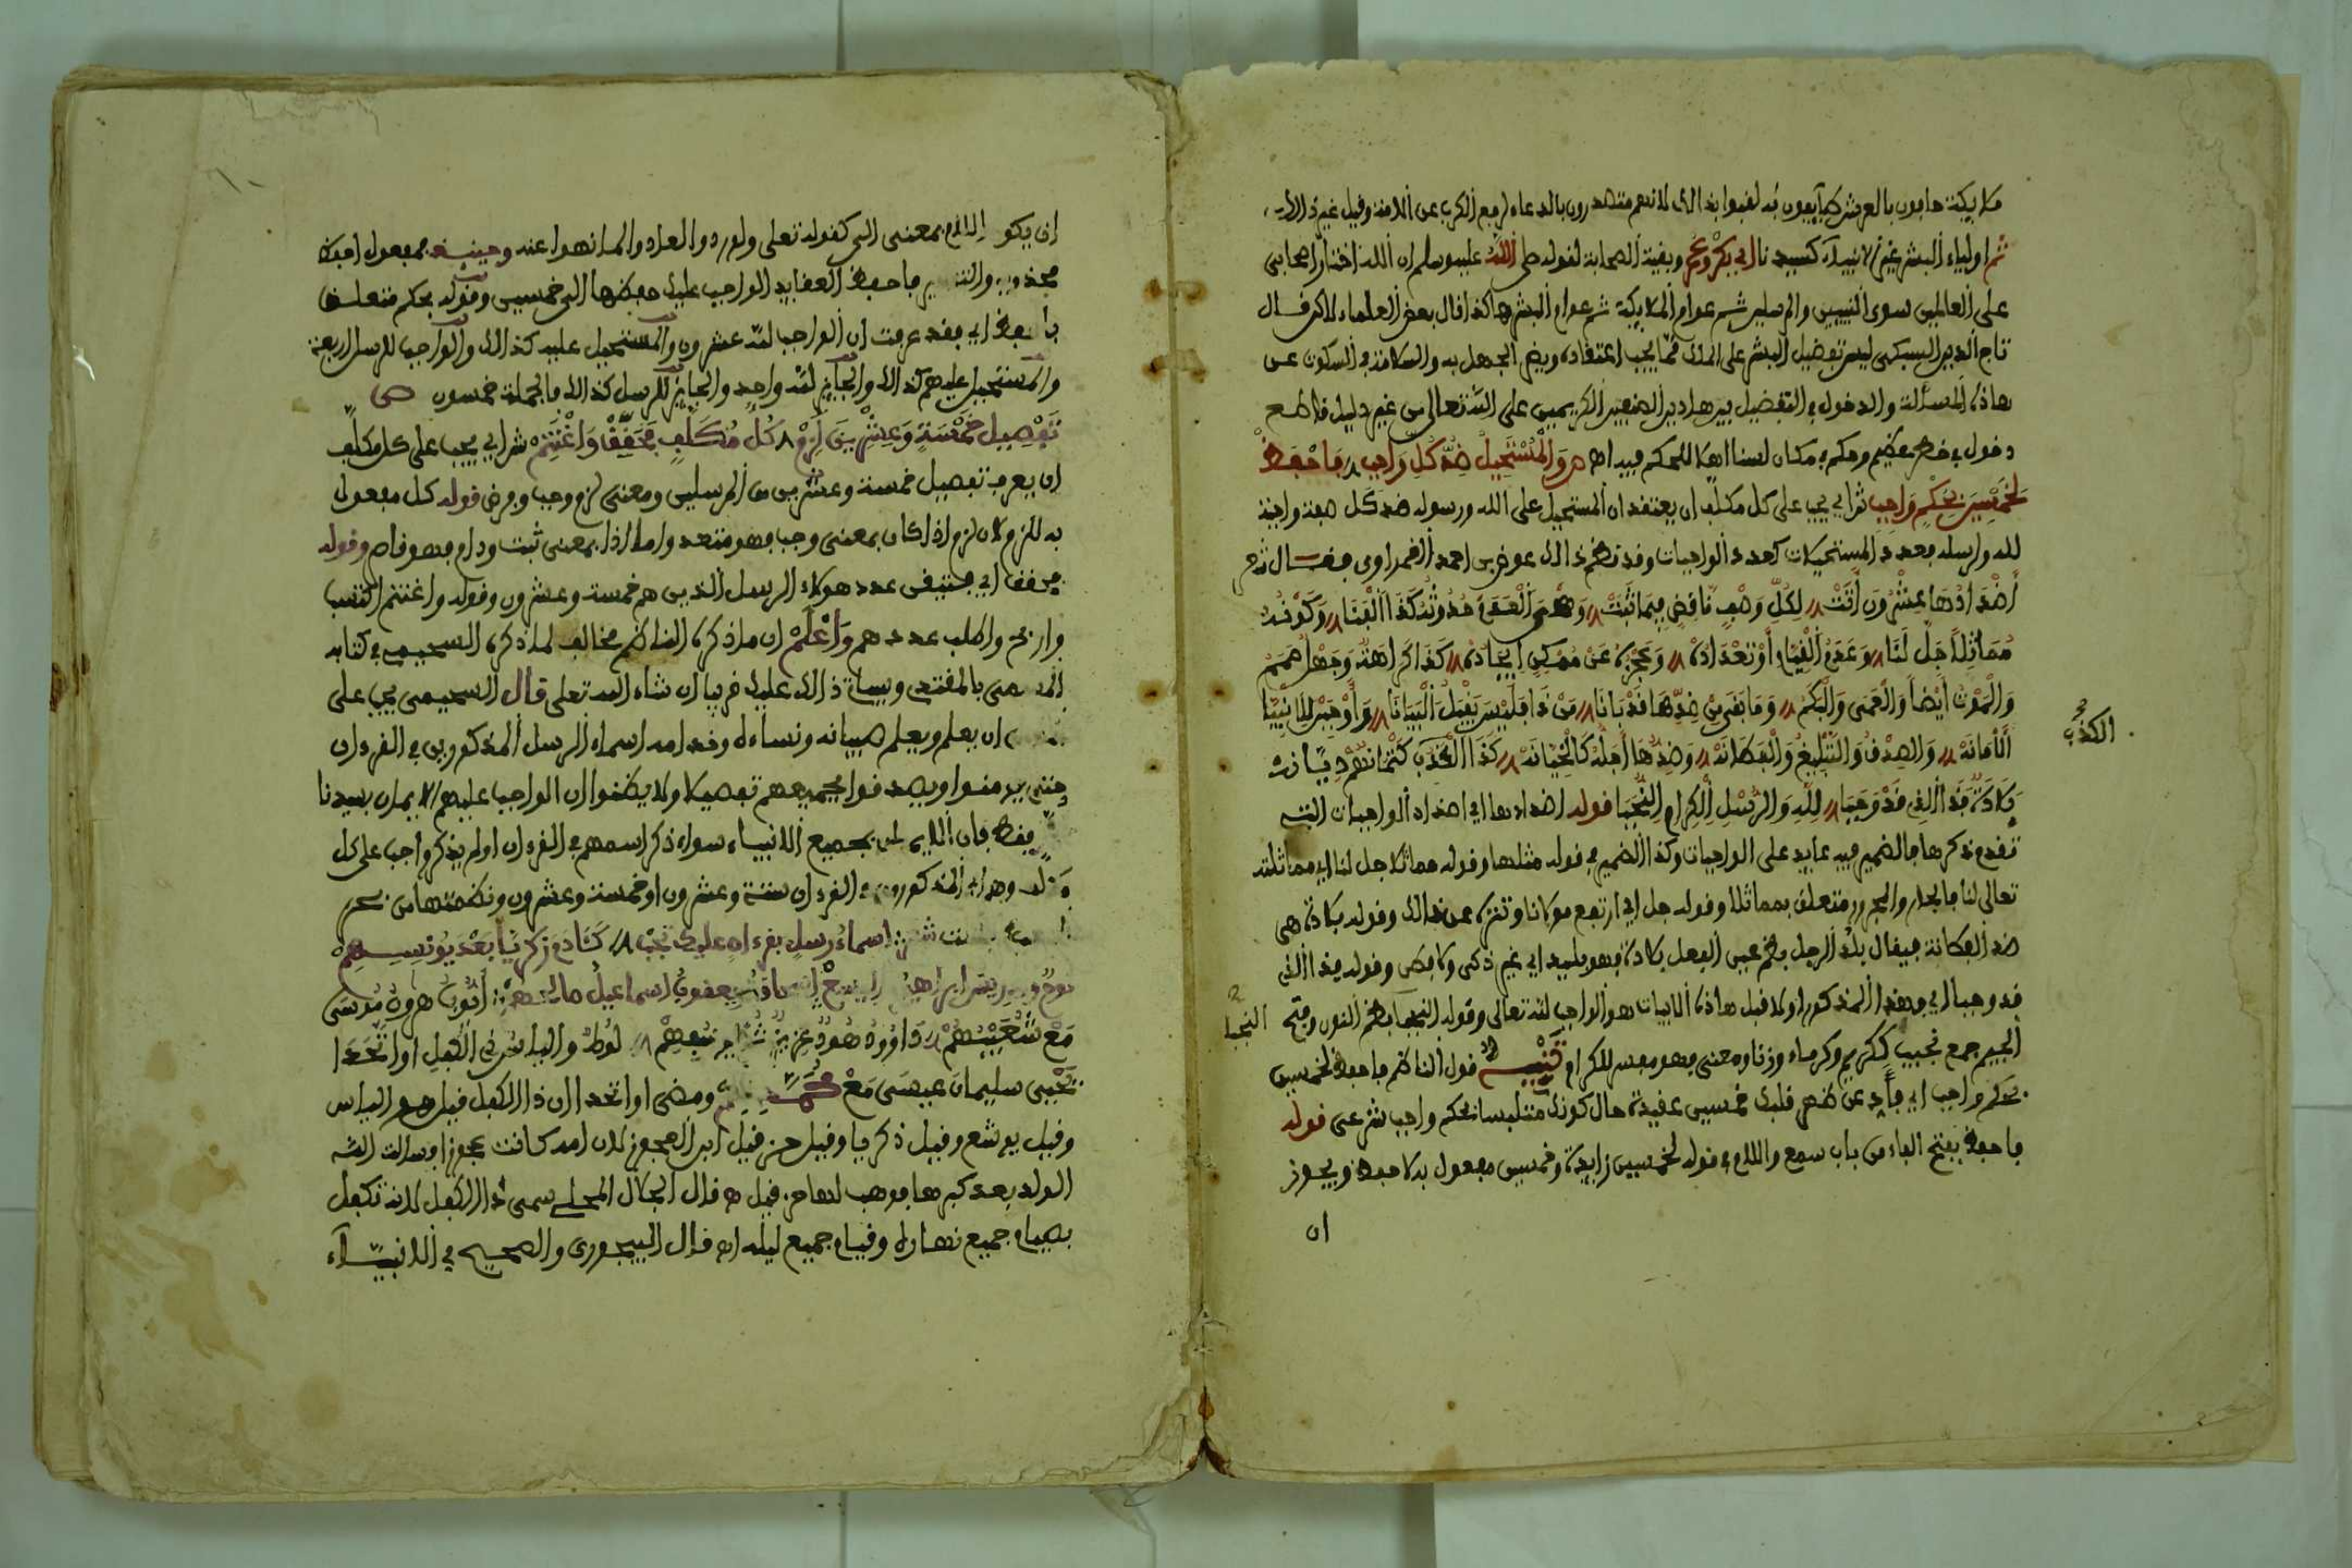 ملايكة حافون بالعرش طايفون به لقبوا بذالك لانهم متصدرون بالدعاء لرفع الكرب عن الامة وقيل غير ذالك
ثم اولياء البشر غير الانبياء كسيدنا ابي بكر وعمر وبقية الصحابة لقوله صلى الله عليه وسلم ان الله اختار اصحابي
على العالمين سوى النبيين والمرسلين ثم عوام الملايكة ثم عوام البشر هاكذا قال بعض العلماء لاكن قال
تاج الدين السبكي ليس تفضيل البشر على الملك مما يجب اعتقاده ويضر الجهل به والسلامة في السكوت عن
هاذه المسألة والدخول في التفضيل بين هاذين الصنفين الكريمين على الله تعالى من غير دليل قاطع
دخول في خطر عظيم وحكم في مكان لسنا اهلا للحكم فيه اه ص والمستحيل ضد كل واجب فاحفظ
لخمسين بحكم واجب ش اي يجب على كل مكلف ان يعتقد ان المستحيل على الله ورسوله ضد كل صفة واجبة
لله ولرسله فعدد المستحيلات كعدد الواجبات وقد نظم ذالك عوض بن احمد الغمراوي فقال شعر
أضدادها عشرون أتت لكل وصف ناقض فيما ثبت وهي العدم حدوث كذا الفنا وكونه
مماثلا جل لنا وعدم القيام أو تعداده وعجزه عن ممكن إيجاده كذا كراهة وجهل صمم
والموت أيضا والعمى والبكم وما بقي من ضدها قد بانا من ذا فليس يقبل البيانا وأوجبن للانبيا
الأمانه والصدق والتبليغ والفطانه وضدها أجله كالخيانه كذا الكذب كتمانهم ديانة
الكذب
بلادة فذا الذي قد وجبا لله والرسل الكرام النجبا قوله اضدادها اي اضداد الواجبات التي
تقدم ذكرها فالضمير فيه عايد على الواجبات وكذا الضمير في قوله مثلها وقوله مماثلا جل لنا اي مماثلته
تعالى لنا فالجار والمجرور متعلق بمماثلا وقوله جل اي ارتفع مولانا وتنزه عن ذالك وقوله بلادة هي
ضد الفطانة فيقال بلد الرجل بضم عين الفعل بلادة فهو بليد اي غير ذكي ولا فطن وقوله فذا الذي
قد وجبا اي وهذا المذكور اولا قبل هاذه الابيات هو الواجب لله تعالى وقوله النجبا بضم النون وفتح
النجبا
الجيم جمع نجيب ككريم وكرماء وزنا ومعنى فهو مفسر للكرام تنبيه قول الناظم فاحفظ لخمسين
بحكم واجب اي فأد عن ظهر قلبك خمسين عقيدة حال كونك متلبسا بحكم واجب شرعي قوله
فاحفظ بفتح الفاء من باب سمع واللام في قوله لخمسين زايدة وخمسين مفعول به لاحفظ ويجوز
ان
ان يكون اللام بمعنى الى كقوله تعلى ولو ردوا لعادوا لما نهوا عنه وحينئذ فمفعول احفظ
محذوف والتقدير فاحفظ العقايد الواجب عليك حفظها الى خمسين وقوله بحكم متعلق
باحفظ اي فقد عرفت ان الواجب لله عشرون والمستحيل عليه كذالك والواجب للرسل اربعة
والمستحيل عليهم كذالك والجايز لله واحد والجايز للرسل كذالك فالجملة خمسون ص
تفصيل خمسة وعشرين لزم كل مكلف فحقق واغتنم ش اي يجب على كل مكلف
ان يعرف تفصيل خمسة وعشرين من المرسلين ومعنى لزم وجب وفرض قوله كل مفعول
به للزم لان لزم اذا كان بمعنى وجب فهو متعد واما اذا بمعنى ثبت ودام فهو قاصر وقوله
فحقق اي فتيقن عدد هولاء الرسل الذين هم خمسة وعشرون وقوله واغتنم اكتسب
واربح واطلب عددهم واعلم ان ما ذكره الناظم مخالف لما ذكره السحيمي في كتابه
المسمى بالمقتدي وبيان ذالك عليك قريبا ان شاء الله تعلى قال السحيمي يجب على
ان يعلم ويعلم صبيانه ونساءه وخدامه اسماء الرسل المذكورين في القرءان
حتى يومنوا ويصدقوا بجميعهم تفصيلا ولا يظنوا ان الواجب عليهم الايمان بسيدنا
فقط فان الايمان بجميع الانبياء سواء ذكر اسمهم في القرءان او لم يذكر واجب على كل
مكلف وهم اي المذكورون في القرءان ستة وعشرون او خمسة وعشرون ونظمتها من بحر
اسماء رسل بقرءان عليك تجب كئادم زكريا بعد يونسهم
نوح وادريس ابراهيم واليسع إسحاق يعقوب اسماعيل صالحهم أيوب هرون موسى
مع شعيبهم داوود هود عزيز لوط والياس ذي الكفل او اتحدا
يحيى سليمان عيسى مع محمد ومعنى او اتحدا ان ذا الكفل قيل هو الياس
وقيل يوشع وقيل زكريا وقيل حزقيل ابن العجوز لان امه كانت عجوزا وسالت الله
الولد بعد كبرها فوهب لها حزقيل ه قال الجلال المحلي سمي ذا الكفل لانه تكفل
بصيام جميع نهاره وقيام جميع ليله اه قال البيجوري والصحيح في الانبياء